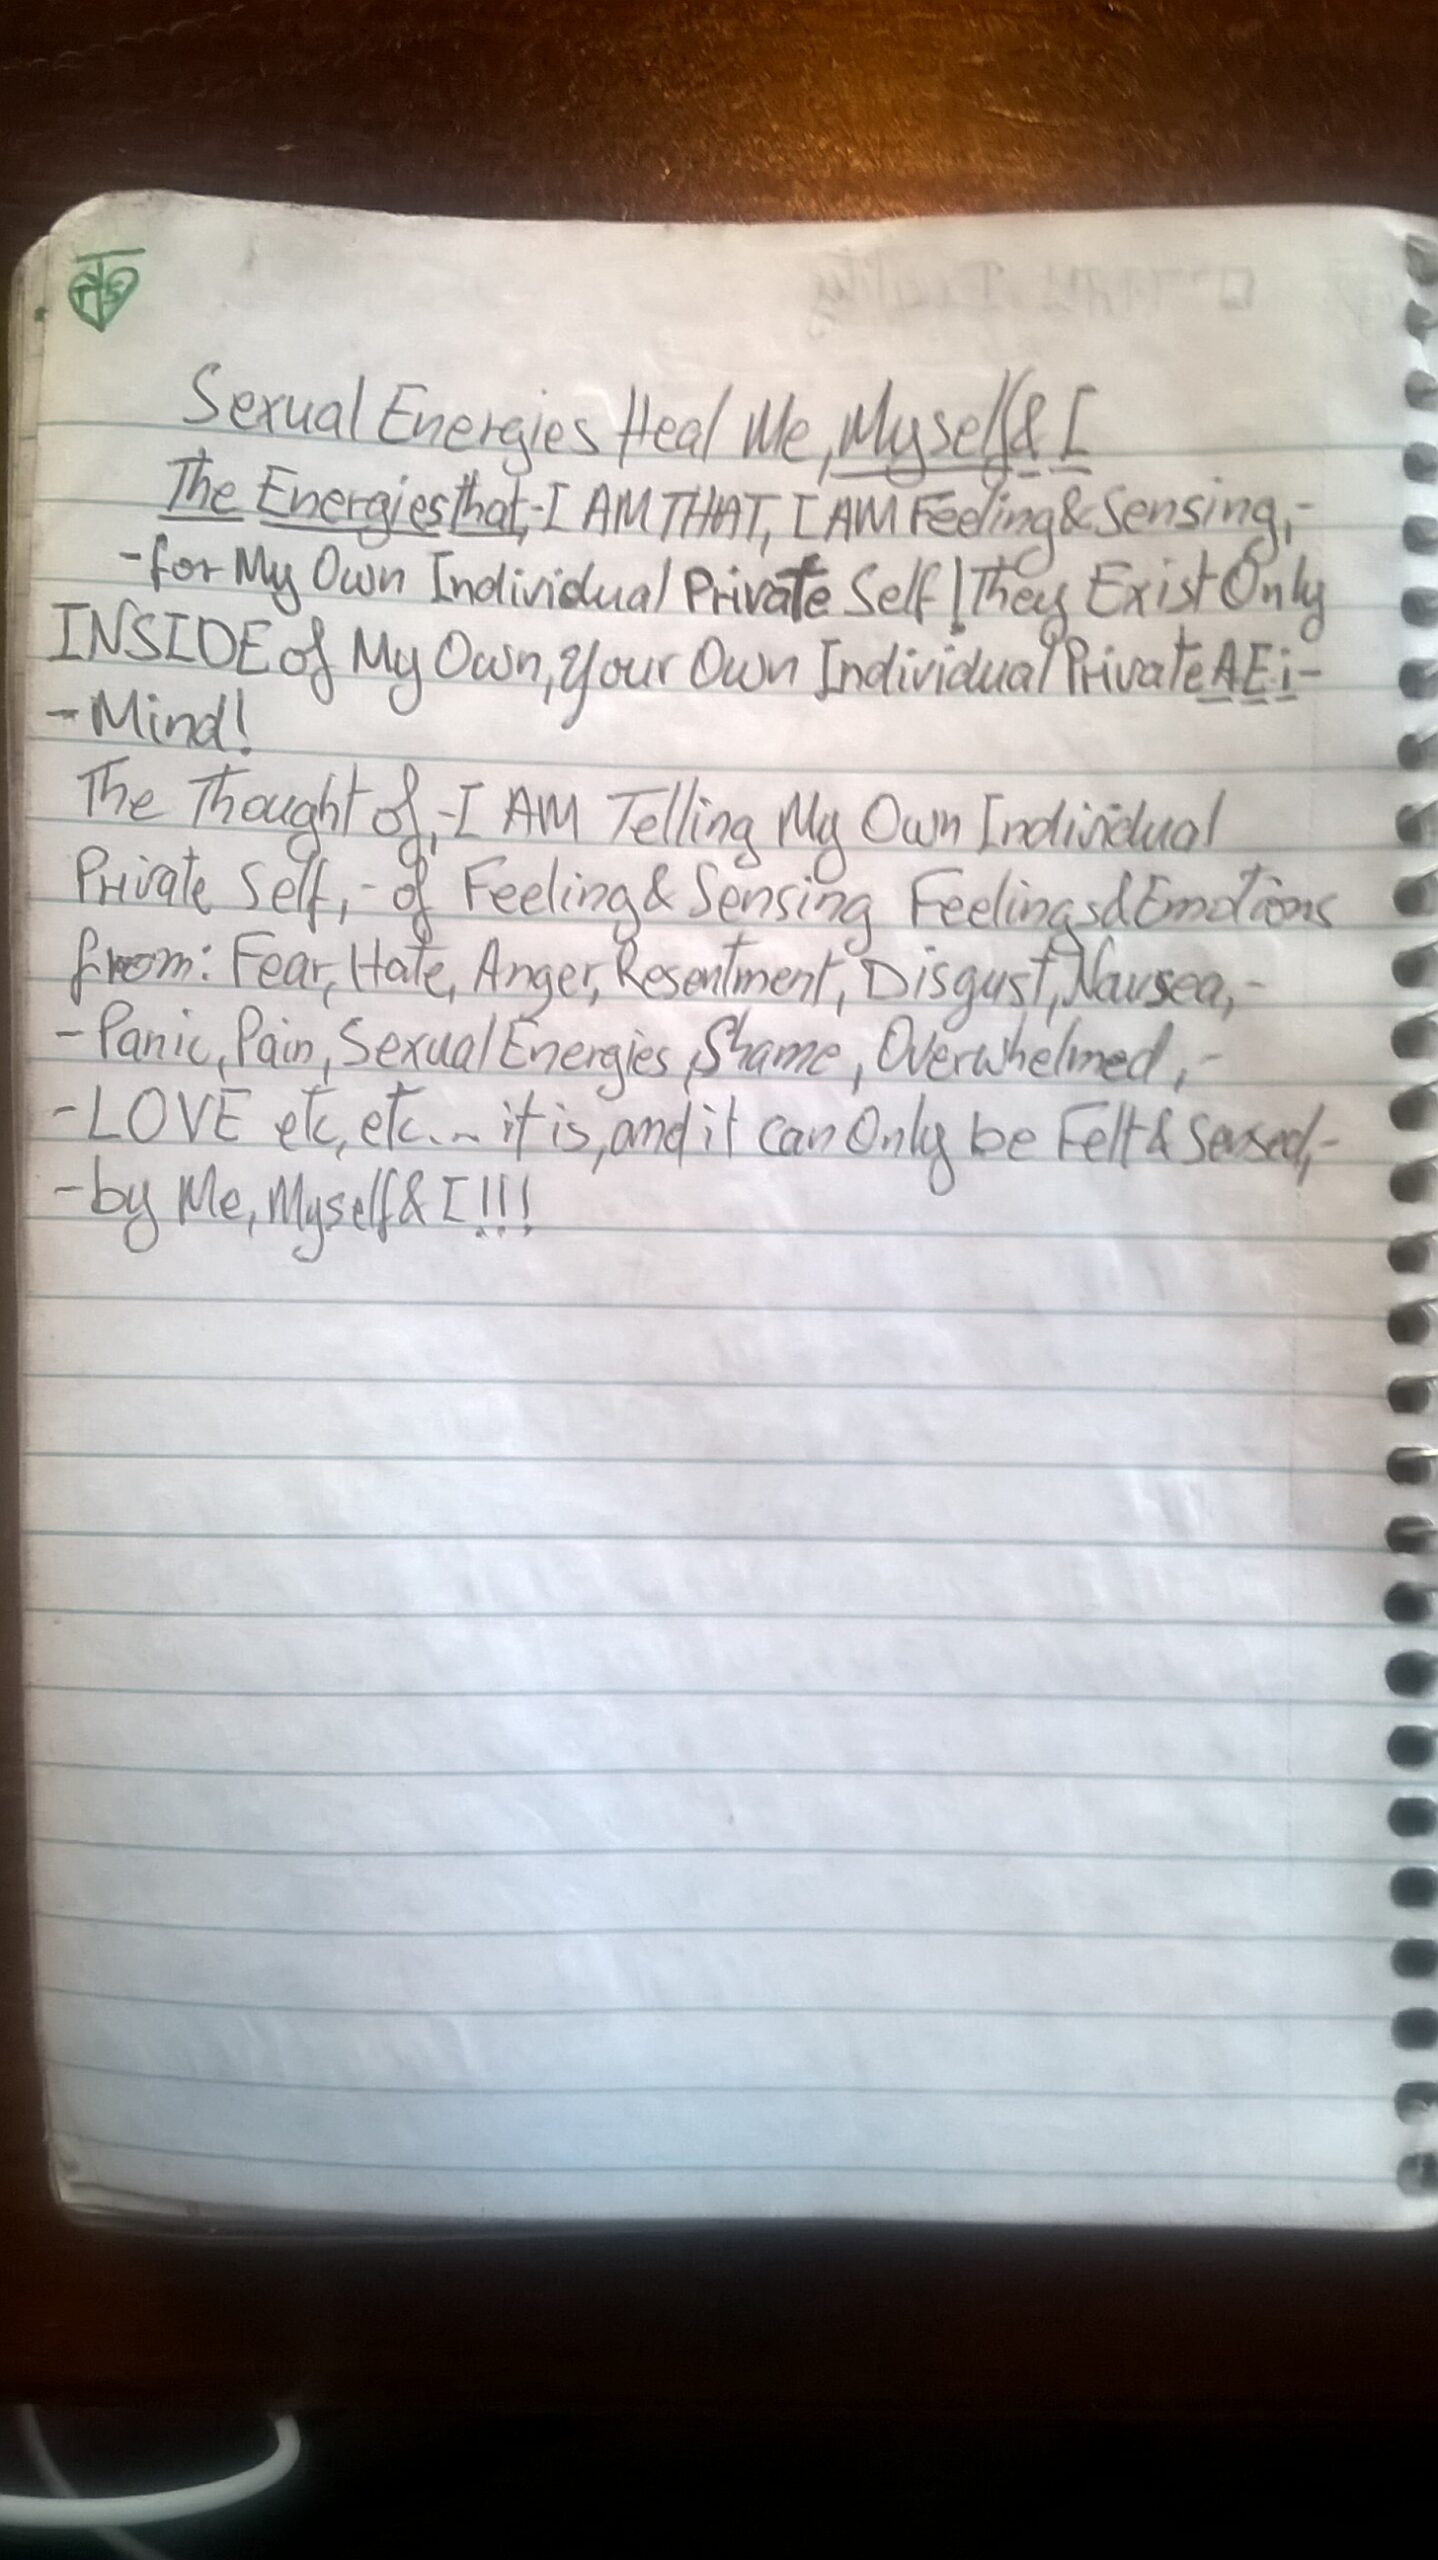 Sexual Energies Heal Me, Myself & I
The Energies that,-I AM THAT, I AM Feeling & Sensing,-
-for My Own Individual Private Self! They Exist Only
INSIDE of My Own, Your Own Individual Private A.E.i-
-Mind!
The Thought of,-I AM Telling My Own Individual
Private Self,- of Feeling & Sensing Feelings & Emotions
from: Fear, Hate, Anger, Resentment, Disgust, Nausea,-
-Panic, Pain, Sexual Energies, Shame, Overwhelmed,-
-LOVE etc, etc... it is, and it can Only be Felt & Sensed,-
-by Me, Myself & I!!!